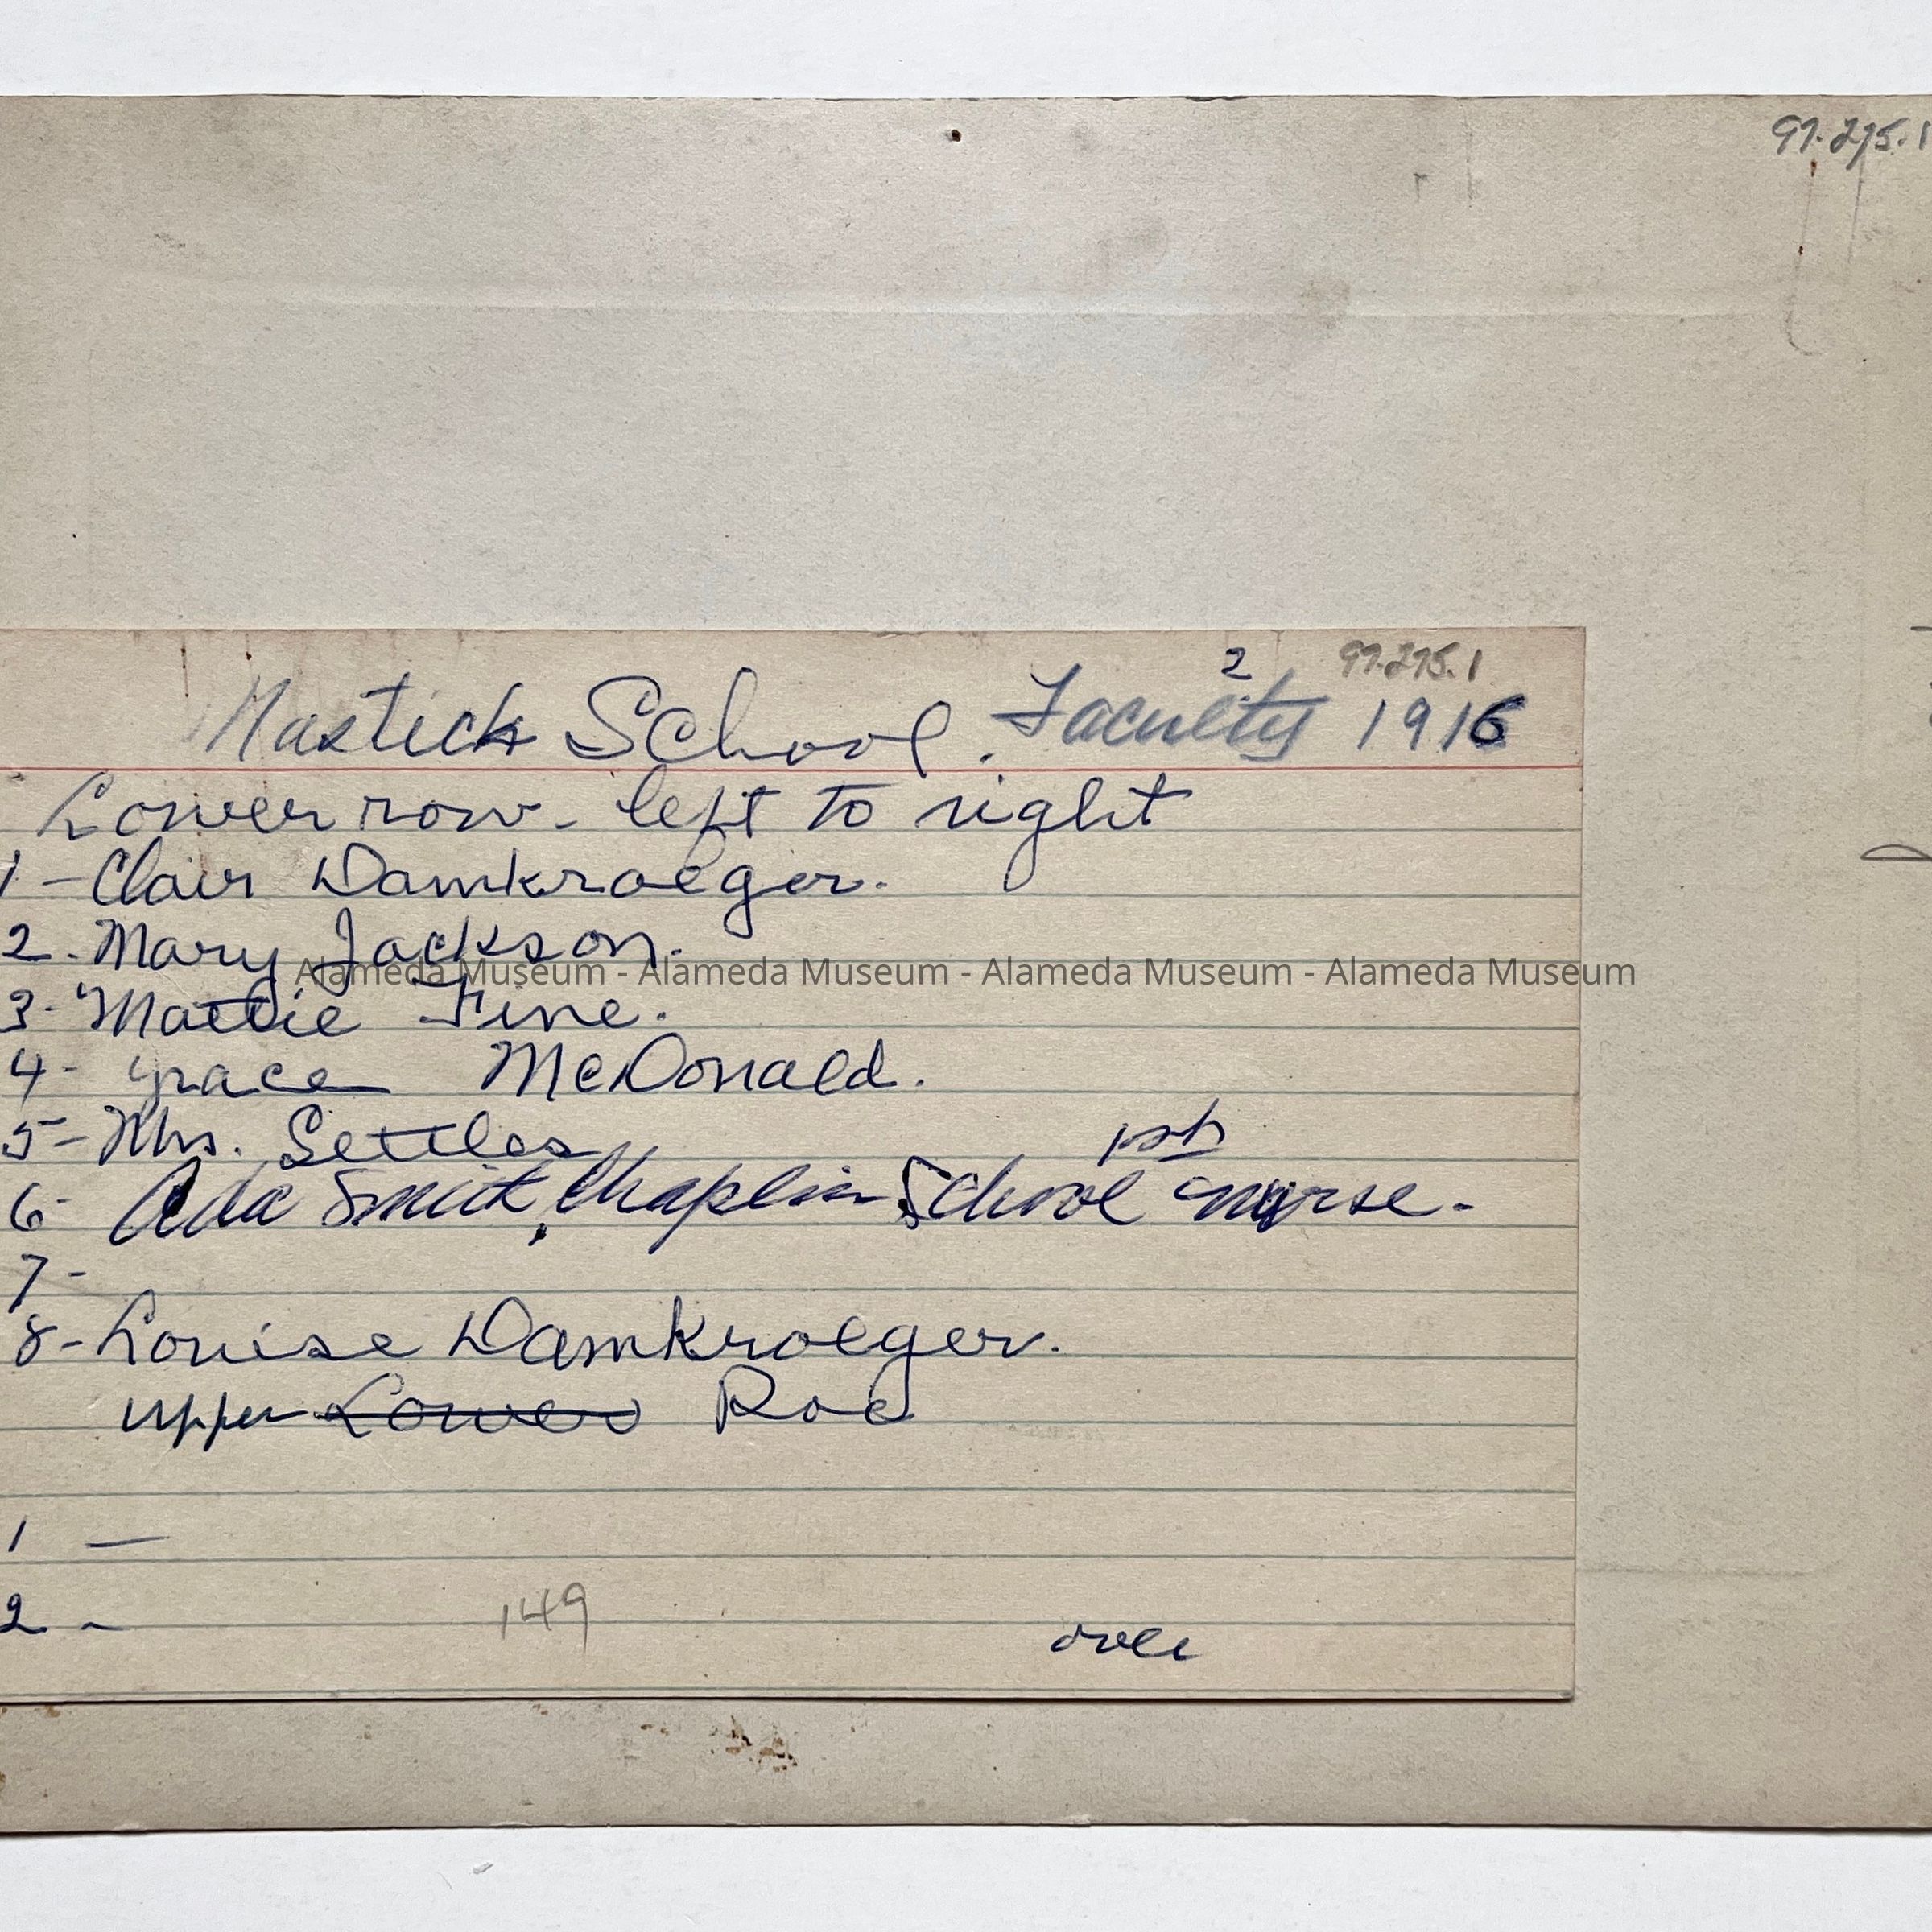 97.275.1
2 97.275.1
Mastick School. Faculty 1916
Lower row - left to right
1 - Clair Damkroeger.
2. Mary Jackson.
Alameda Museum - Alameda Museum - Alameda Museum - Alameda Museum
3- Mattie Fine.
4- Grace McDonald.
5- Mrs. Settles
1st
6- Ada Smith, Chaplin School nurse.
7-
8- Louise Damkroeger.
upper Lower Roe
1 —
2 -
149
over